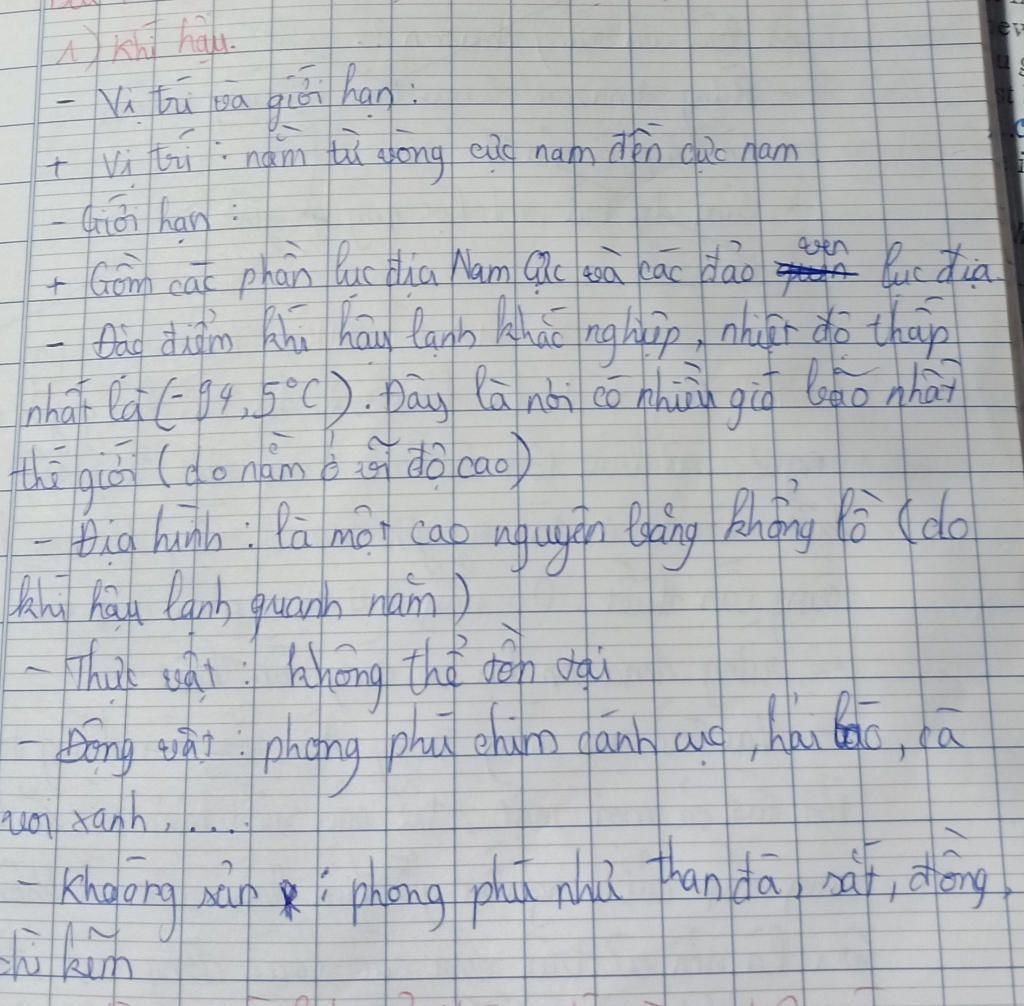 1) Khí hậu.
- Vị trí và giới hạn :
+ Vị trí : nằm từ vòng cực nam đến cực nam
- Giới hạn :
+ Gồm các phần lục địa Nam Cực và các đảo ven lục địa
- Đặc điểm khí hậu lạnh khắc nghiệp, nhiệt độ thấp
nhất là (-94,5°C). Đây là nơi có nhiều gió bão nhất
thế giới (do nằm ở vĩ độ cao)
- Địa hình : là một cao nguyên băng khổng lồ (do
khí hậu lạnh quanh năm)
- Thực vật : không thể tồn tại
- Động vật : phong phú chim cánh cụt, hải báo, cá
voi xanh, ....
- Khoáng sản : phong phú như than đá, sắt, đồng,
chì kẽm